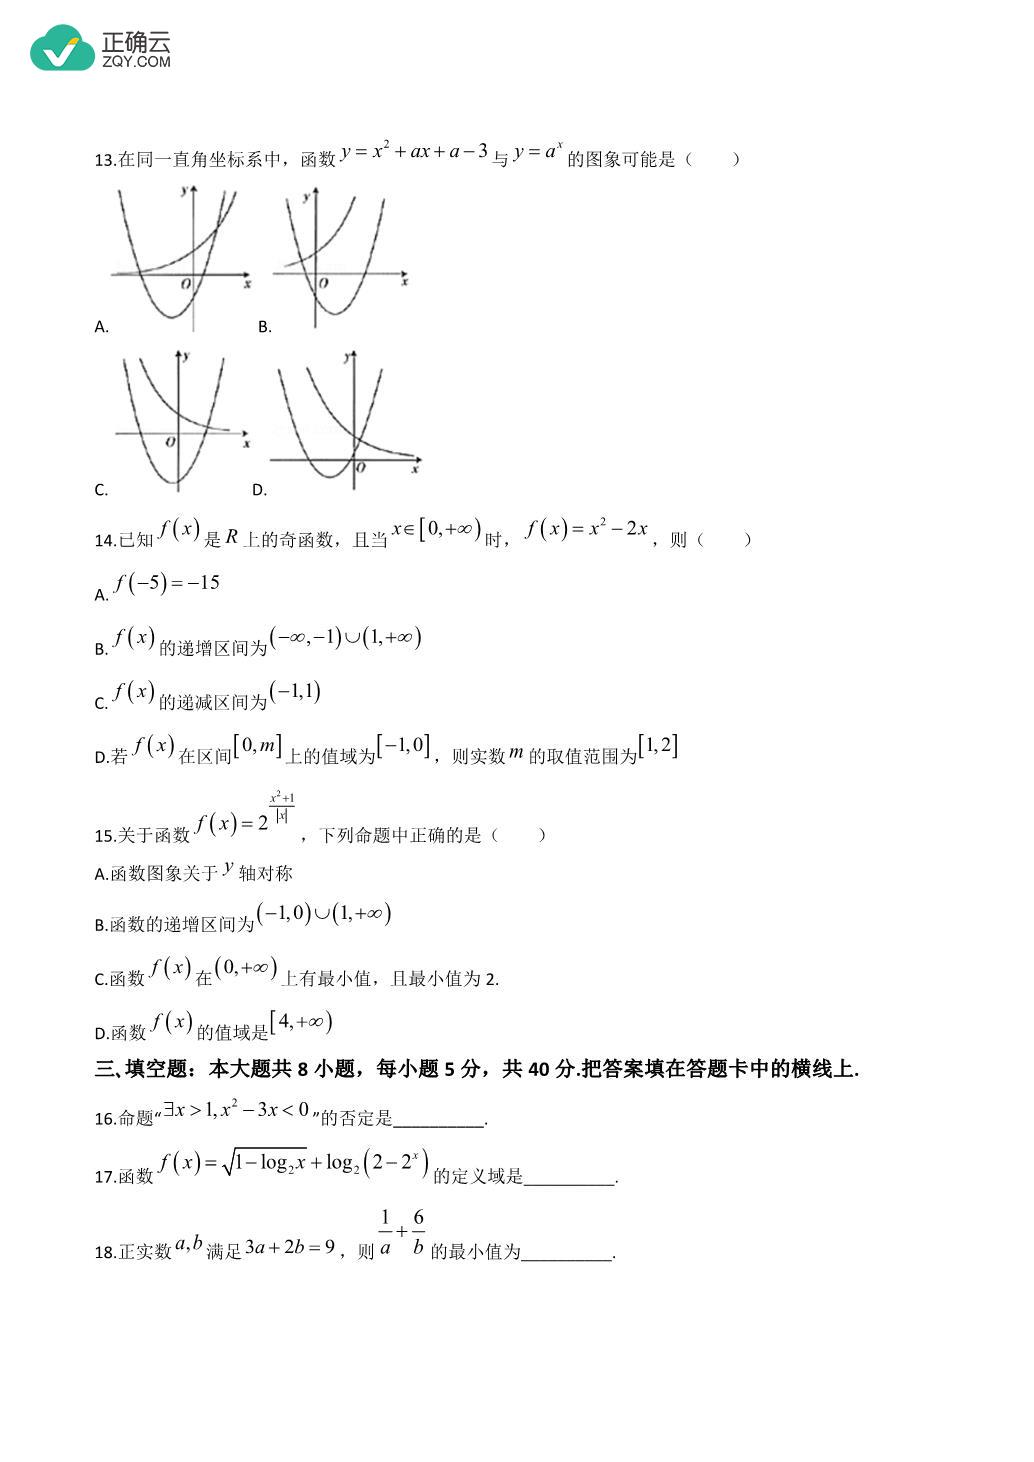 正确云
ZQY.COM
13.在同一直角坐标系中，函数 y = x² + ax + a − 3 与 y = aˣ 的图象可能是（　　）
y y
O x O x
A. B.
y y
O x O x
C. D.
14.已知 f(x) 是 R 上的奇函数，且当 x∈[0,+∞) 时， f(x) = x² − 2x ，则（　　）
A. f(−5) = −15
B. f(x) 的递增区间为 (−∞,−1)∪(1,+∞)
C. f(x) 的递减区间为 (−1,1)
D.若 f(x) 在区间 [0,m] 上的值域为 [−1,0] ，则实数 m 的取值范围为 [1,2]
15.关于函数 f(x) = 2^((x²+1)/|x|) ，下列命题中正确的是（　　）
A.函数图象关于 y 轴对称
B.函数的递增区间为 (−1,0)∪(1,+∞)
C.函数 f(x) 在 (0,+∞) 上有最小值，且最小值为 2.
D.函数 f(x) 的值域是 [4,+∞)
三、填空题：本大题共 8 小题，每小题 5 分，共 40 分.把答案填在答题卡中的横线上.
16.命题“∃x > 1, x² − 3x < 0 ”的否定是__________.
17.函数 f(x) = √(1−log₂x) + log₂(2 − 2ˣ) 的定义域是__________.
18.正实数 a,b 满足 3a + 2b = 9 ，则 1/a + 6/b 的最小值为__________.